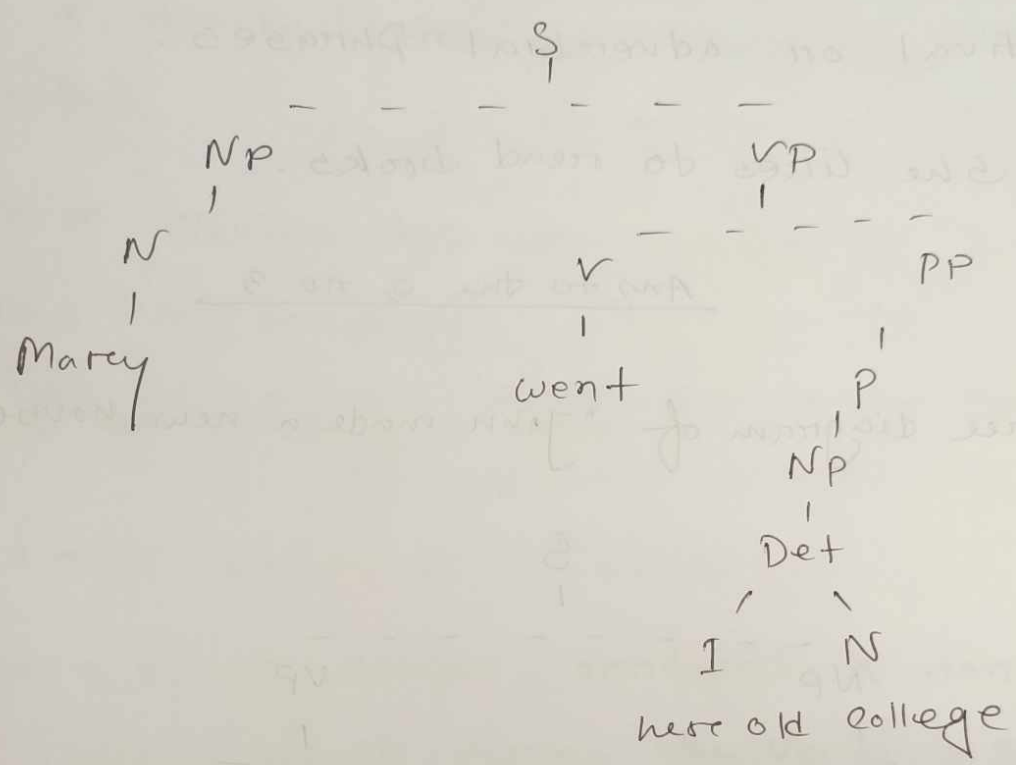 S
NP VP
N V PP
Marcy went P
NP
Det
I N
here old college